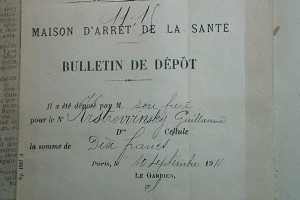 11-16
MAISON D'ARRÊT DE LA SANTÉ
BULLETIN DE DÉPÔT
Il a été déposé par M. son frère
pour le Nº Kostrovvinsky Guillaume
Dºn Cellule
la somme de Dix francs
Paris, le 10 septembre 1911
LE GARDIEN,